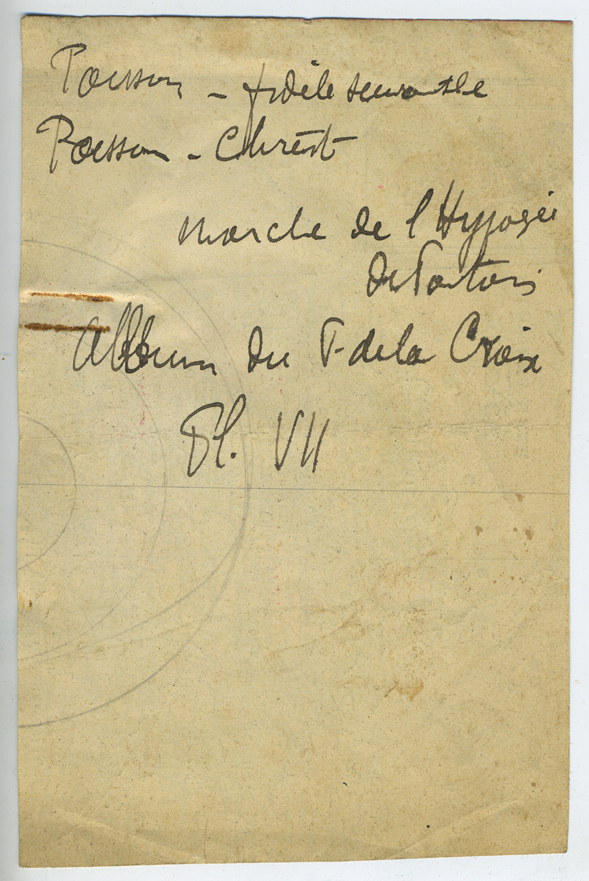 Poisson - fidèle suivant le
Poisson - Christ
marche de l'Hypogée
de Poitiers
Album du P. de la Croix
Pl. VII